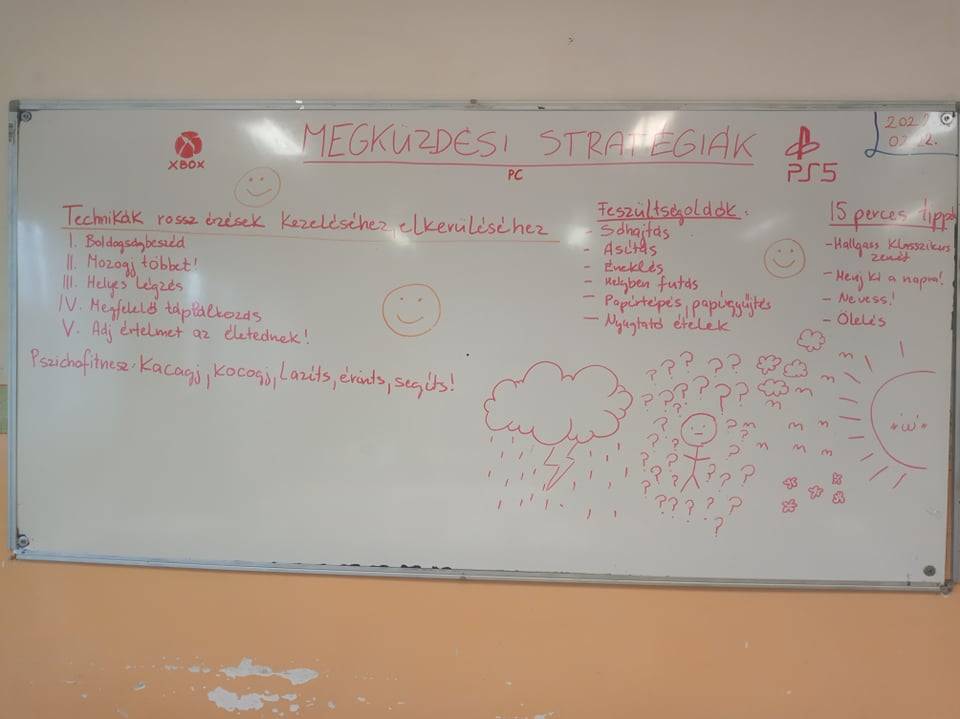 XBOX
MEGKÜZDÉSI STRATÉGIÁK
PC
PS5
202
02.22.
Technikák rossz érzések kezeléséhez, elkerüléséhez
I. Boldogságbeszéd
II. Mozogj többet!
III. Helyes légzés
IV. Megfelelő táplálkozás
V. Adj értelmet az életednek!
Pszichofitnesz: Kacagj, kocogj, lazíts, érints, segíts!
Feszültségoldók:
- Sóhajtás
- Ásítás
- Éneklés
- Helyben futás
- Papírtépés, papírgyűjtés
- Nyugtató ételek
15 perces tippek
- Hallgass klasszikus
zenét
- Menj ki a napra!
- Nevess!
- Ölelés